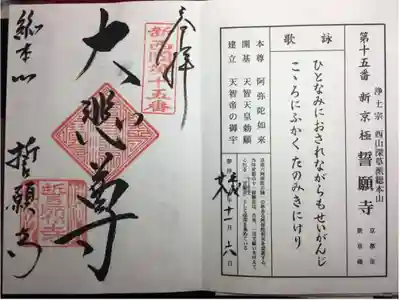 奉拝
新西国第十五番
大悲尊
総本山
誓願寺
誓願寺
第十五番
浄土宗 西山深草派総本山
新京極 誓願寺
京都市
新京極
詠歌
ひとなみにおされながらもせいがんじ
こゝろにふかくたのみきにけり
本尊 阿弥陀如来
開基 天智天皇勅願
建立 天智帝の御宇
年十一月六日